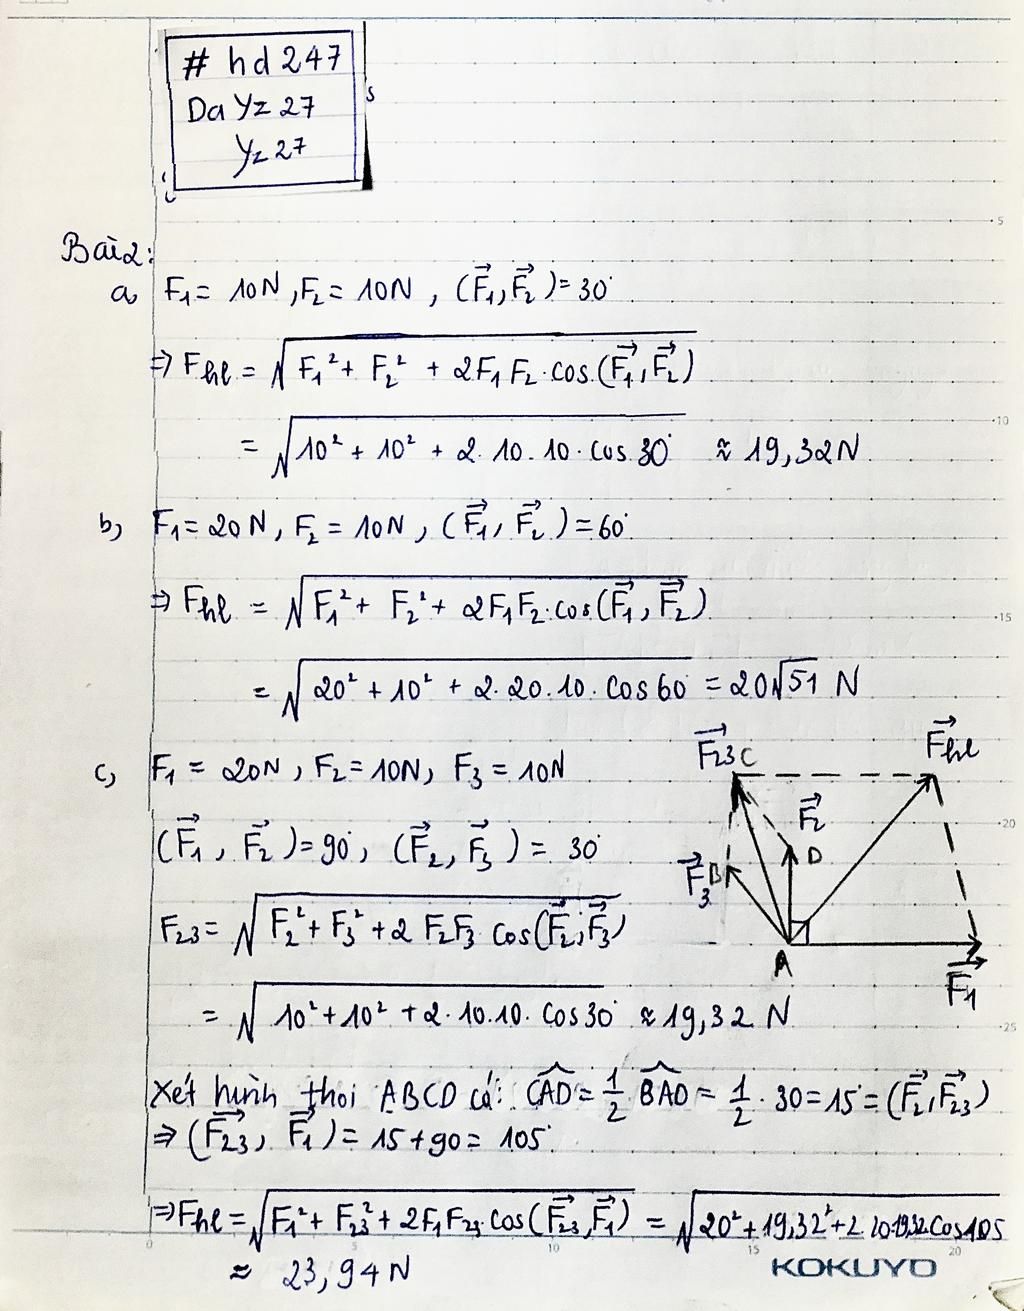 # hd 247
Da Yz 27
Yz 27
s
Bài 2:
a, F₁ = 10N, F₂ = 10N, (F₁→, F₂→) = 30°
⇒ Fhl = √(F₁² + F₂² + 2F₁F₂.cos(F₁→, F₂→))
= √(10² + 10² + 2.10.10.cos 30°) ≈ 19,32N
b, F₁ = 20N, F₂ = 10N, (F₁→, F₂→) = 60°
⇒ Fhl = √(F₁² + F₂² + 2F₁F₂.cos(F₁→, F₂→))
= √(20² + 10² + 2.20.10.cos 60) = 20√51 N
c, F₁ = 20N, F₂ = 10N, F₃ = 10N
(F₁→, F₂→) = 90°, (F₂→, F₃→) = 30°
F₂₃ = √(F₂² + F₃² + 2 F₂F₃ cos(F₂→; F₃→))
= √(10² + 10² + 2.10.10.cos 30°) ≈ 19,32 N
F₂₃→ C
Fhl→
F₂→
D
F₃→ B
A
F₁→
Xét hình thoi ABCD có: CAD = 1/2 . BAD = 1/2 . 30 = 15° = (F₂→, F₂₃→)
⇒ (F₂₃→, F₁→) = 15 + 90 = 105°
⇒ Fhl = √(F₁² + F₂₃² + 2F₁F₂₃.cos(F₂₃→, F₁→)) = √(20² + 19,32² + 2.20.19,32 cos 105)
≈ 23,94 N
KOKUYO
5
10
15
20
25
0
5
10
15
20